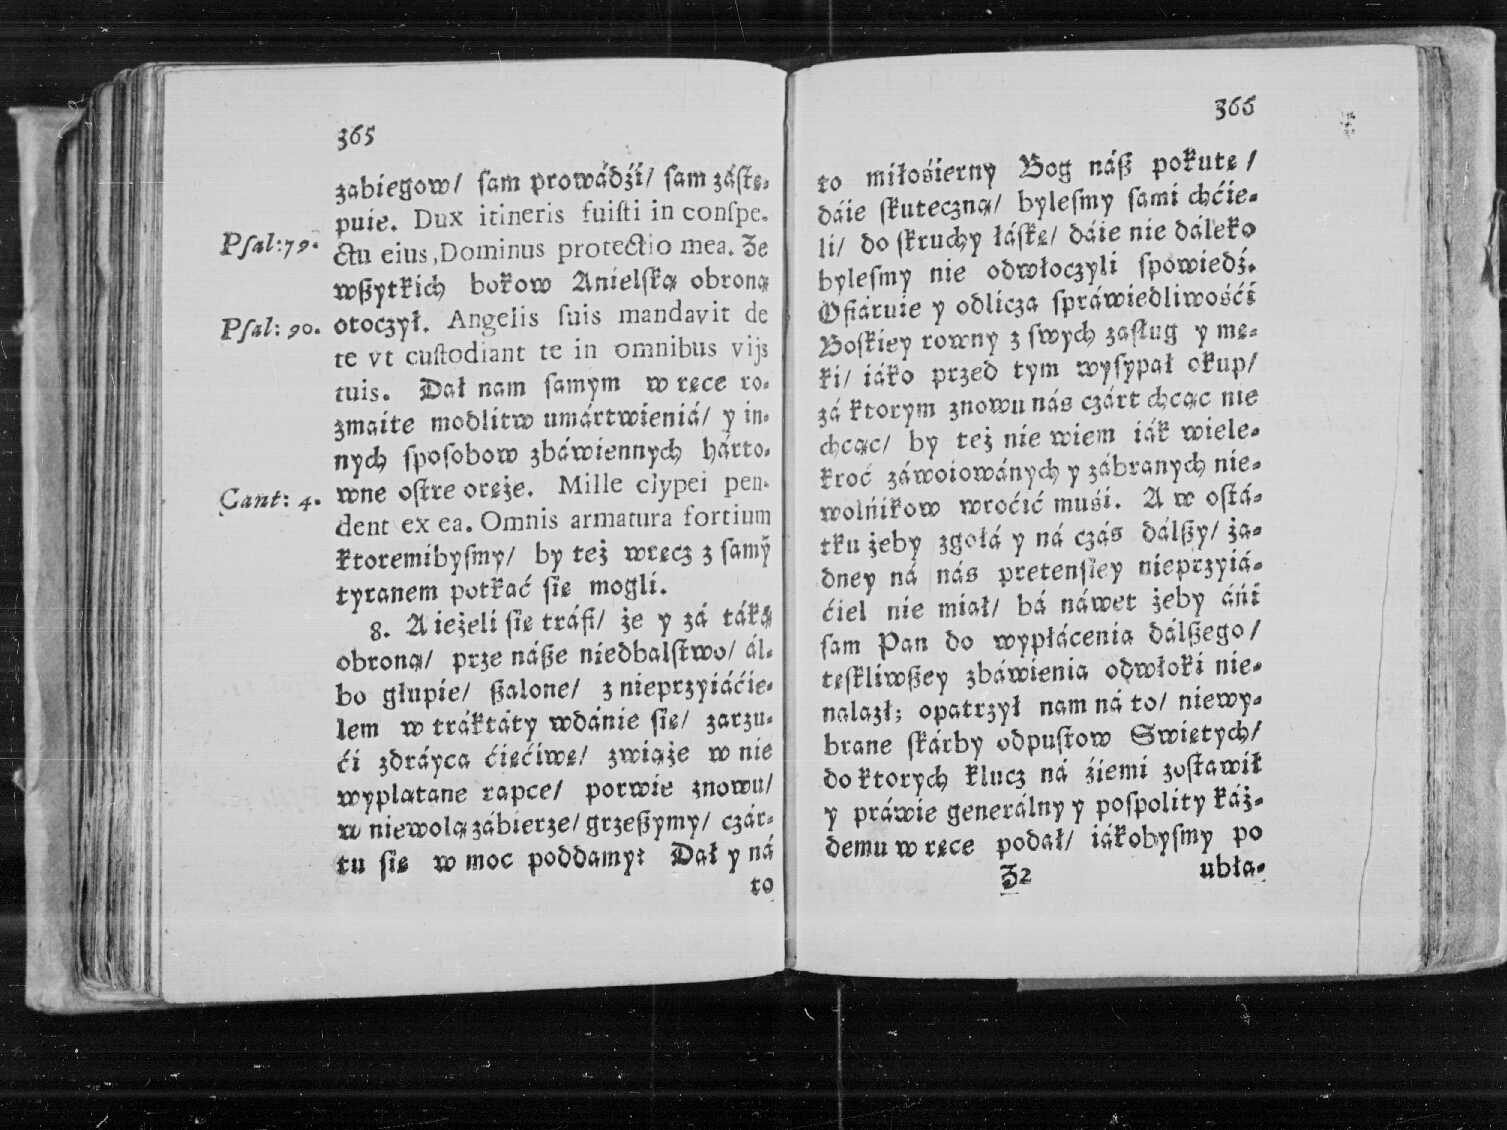 365
zabiegow/ sam prowádźi/ sam zástę-
puie. Dux itineris fuisti in conspe-
Psal:79.
ctu eius, Dominus protectio mea. Ze
wßytkich bokow Anielską obroną
Psal: 90.
otoczył. Angelis suis mandavit de
te vt custodiant te in omnibus vijs
tuis. Dał nam samym w ręce ro-
zmaite modlitw umártwieniá/ y in-
nych sposobow zbáwiennych hárto-
Cant: 4.
wne ostre oręże. Mille clypei pen-
dent ex ea. Omnis armatura fortium
ktoremibysmy/ by też wręcz z samỹ
tyranem potkać się mogli.
8. A ieżeli się tráfi/ że y zá táką
obroną/ prze náße niedbalstwo/ ál-
bo głupie/ ßalone/ z nieprzyiáćie-
lem w tráktáty wdánie się/ zarzu-
ći zdráyca ćięćiwę/ zwiąże w nie
wyplatane rapce/ porwie znowu/
w niewolą zábierze/ grzeßymy/ czár-
tu się w moc poddamy: Dał y ná
to
366
to miłośierny Bog náß pokutę/
dáie skuteczną/ bylesmy sami chćie-
li/ do skruchy łáskę/ dáie nie dáleko
bylesmy nie odwłoczyli spowiedź.
Ofiáruie y odlicza spráwiedliwośći
Boskiey rowny z swych zasług y mę-
ki/ iáko przed tym wysypał okup/
zá ktorym znowu nás czárt chcąc nie
chcąc/ by też nie wiem iák wiele-
kroć záwoiowánych y zábranych nie-
wolńikow wroćić muśi. A w ostá-
tku żeby zgołá y ná czás dálßy/ ża-
dney ná nás pretensiey nieprzyiá-
ćiel nie miał/ bá náwet żeby áńi
sam Pan do wypłácenia dálßego/
teskliwßey zbáwienia odwłoki nie-
nalazł; opatrzył nam ná to/ niewy-
brane skárby odpustow Swiętych/
do ktorych klucz ná źiemi zostawił
y práwie generálny y pospolity káż-
demu w ręce podał/ iákobysmy po
Z2
ubła-